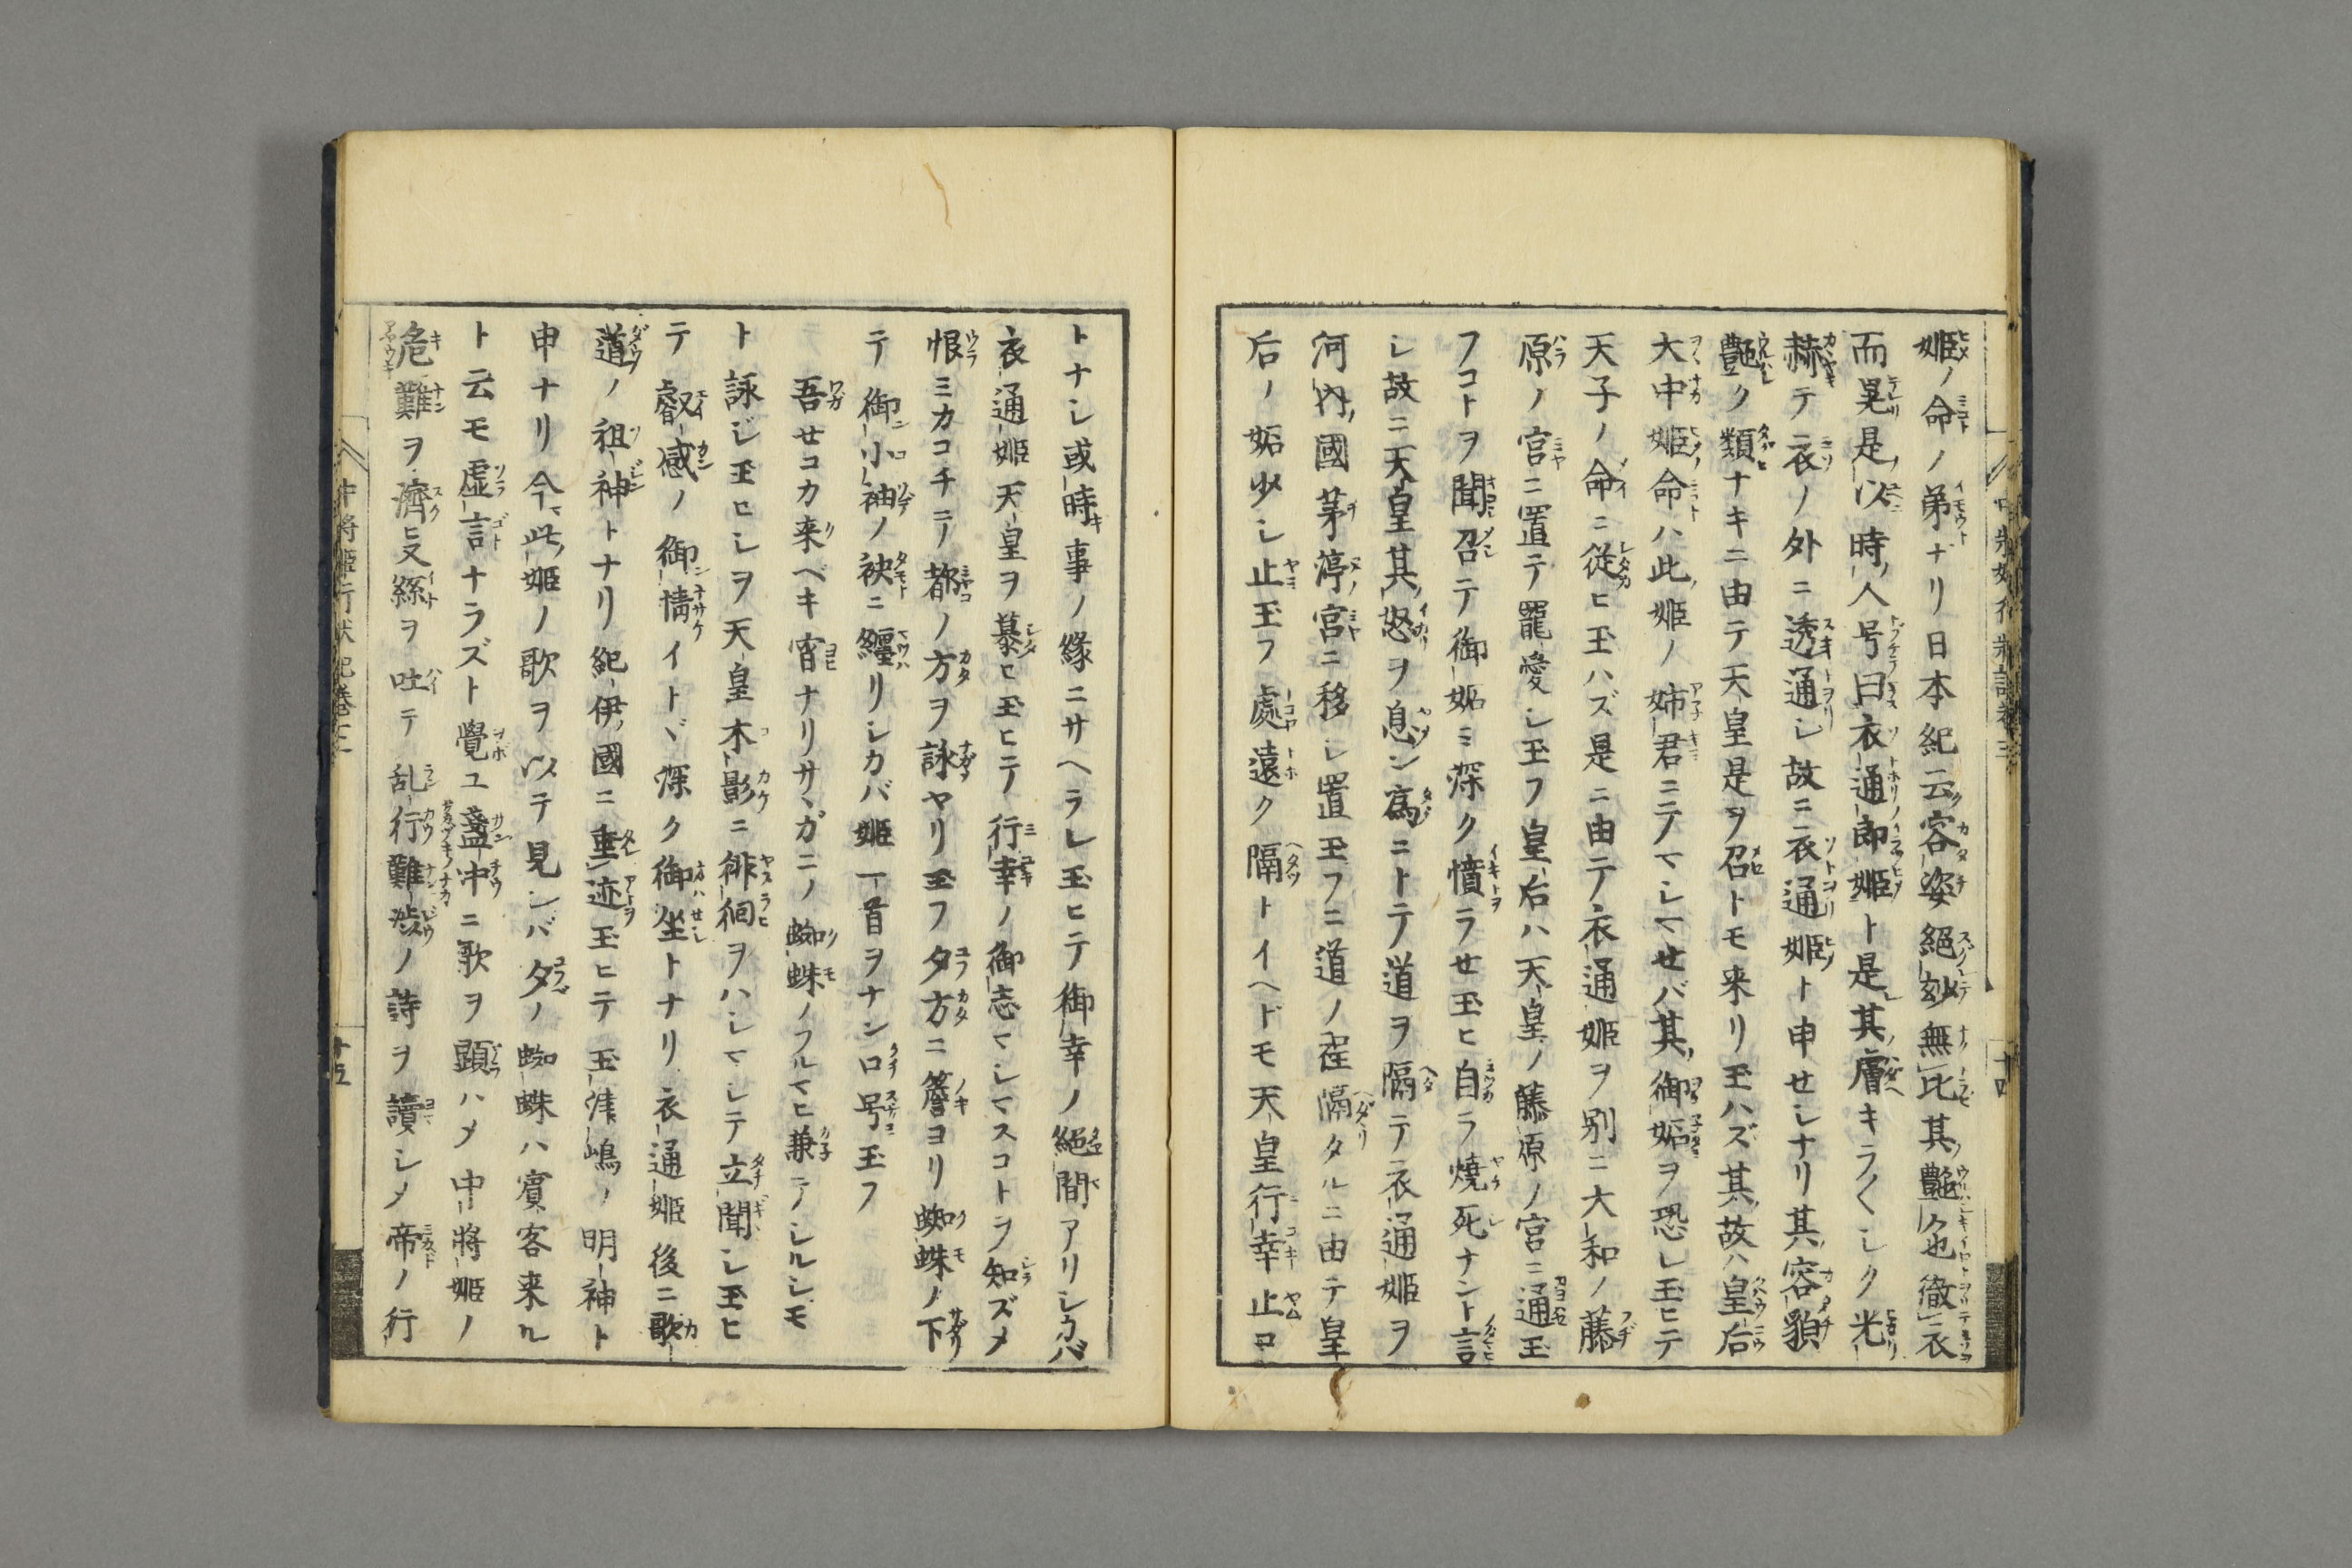 姫ノ命ノ弟ナリ日本紀云容姿絕妙無比其艶色徹衣
而晃是以時人号曰衣通郎姫ト是其膚キラ〱シク光
赫テ衣ノ外ニ透通シ故ニ衣通姫ト申せシナリ其容貌
艶ク類ナキニ由テ天皇是ヲ召トモ来リ玉ハズ其故ハ皇后
大中姫命ハ此姫ノ姉君ニテマシマせバ其御妬ヲ恐レ玉ヒテ
天子ノ命ニ従ヒ玉ハズ是ニ由テ衣通姫ヲ别ニ大和ノ藤
原ノ宮ニ置テ寵愛シ玉フ皇后ハ天皇ノ藤原ノ宮ニ通玉
フコトヲ聞召テ御妬ミ深ク憤ラせ玉ヒ自ラ焼死ナント言
シ故ニ天皇其怒ヲ息ン為ニトテ道ヲ隔テ衣通姫ヲ
河内國茅渟宮ニ移シ置玉フニ道ノ程隔タルニ由テ皇
后ノ妬少シ止玉フ處遠ク隔トイヘドモ天皇行幸止コ
トナシ或時事ノ縁ニサヘラレ玉ヒテ御幸ノ絕間アリシカバ
衣通姫天皇ヲ慕ヒ玉ヒテ行幸ノ御志マシマスコトヲ知ズメ
恨ミカコチテ都ノ方ヲ詠ヤリ玉フ夕方ニ簷ヨリ蜘蛛ノ下
テ御小袖ノ袂ニ纏リシカバ姫一首ヲナン口号玉フ
吾せコカ来ベキ宵ナリサヽガニノ蜘蛛ノフルマヒ兼テシルシモ
ト詠ジ玉ヒシヲ天皇木影ニ徘徊ヲハシマシテ立聞シ玉ヒ
テ叡感ノ御情イトヾ深ク御坐トナリ衣通姫後ニ歌
道ノ祖神トナリ紀伊國ニ垂迹玉ヒテ玉津嶋ノ明神ト
申ナリ今此姫ノ歌ヲ以テ見レバ夕ノ蜘蛛ハ賓客来ル
ト云モ虚言ナラズト覺ユ盞中ニ歌ヲ顕ハメ中將姫ノ
危難ヲ濟ヒ又絲ヲ吐テ乱行難渋ノ詩ヲ讀シメ帝ノ行
中將姫行状記巻三
十五